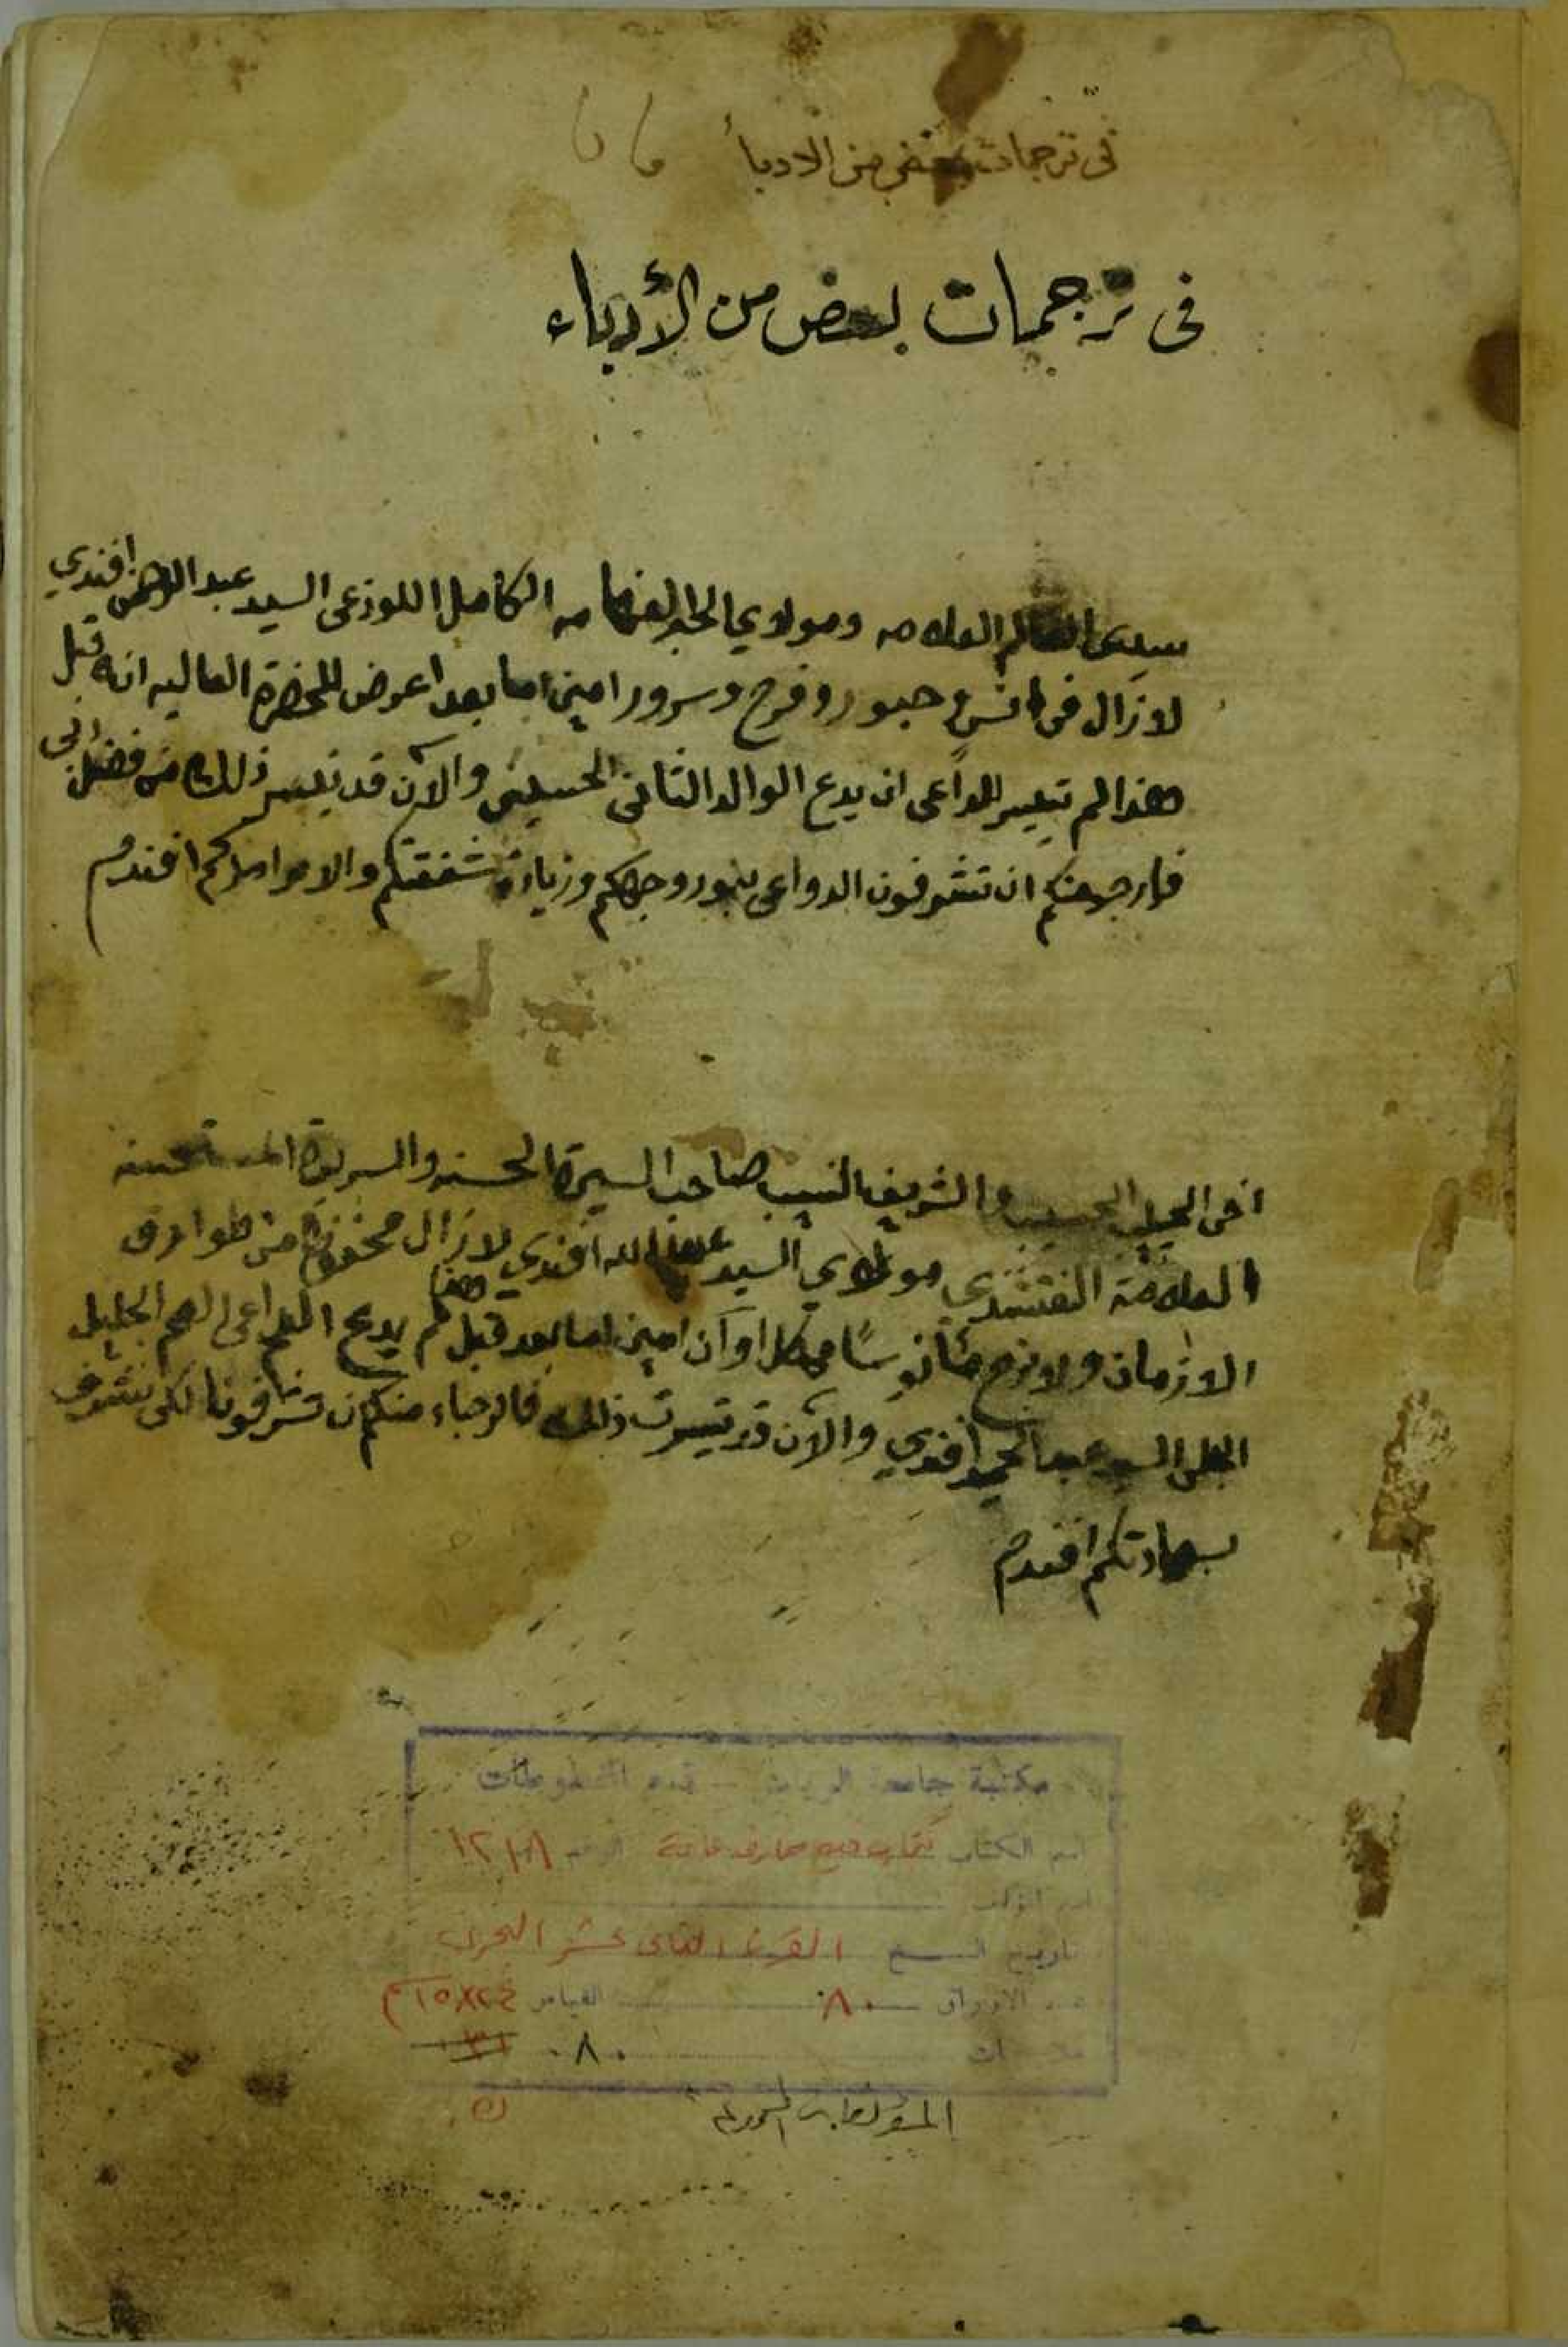 فى ترجمات بعض من الادبا
فى ترجمات بعض من الأدباء
سيدى العالم العلامه ومولاوي الحبر الفهامه الكامل اللوذعى السيد عبد الرحمن افندي
لازال فى انس وحبور وفرح وسرور امين اما بعد اعرض للحضرة العاليه انه قبل
هذا لم تيسر للداعى ان يدع الوالد الثانى الحسين والآن قد تيسر ذلك من فضل
فارجو منكم ان تشرفون الدواعى بنور وجهكم وزيادة شفقتكم والامر امركم افندم
اخى الحبيب الحسيب والشريف النسيب صاحب السيرة الحسنه والسريرة المستحسنه
العلامة النقشبندي مولاي السيد عبد الله افندي لازال محفوظا من طوارق
الازمان ولا برح مأنوسًا كل اوآن امين اما بعد قبل هذا لم يدع الداعى العم الجليل
السيد عبد الحميد افندي والآن قد تيسرت ذلك فالرجاء منكم ان تشرفونا لكى نتشرف
بسعادتكم افندم
مكتبة جامعة الرياض - قسم المخطوطات
اسم الكتاب الرقم ١٢١٨
اسم المؤلف
تاريخ النسخ القرن الثانى عشر الهجرى
عدد الاوراق ٨٠ القياس ٢٤×١٥سم
ملاحظات ٨٠